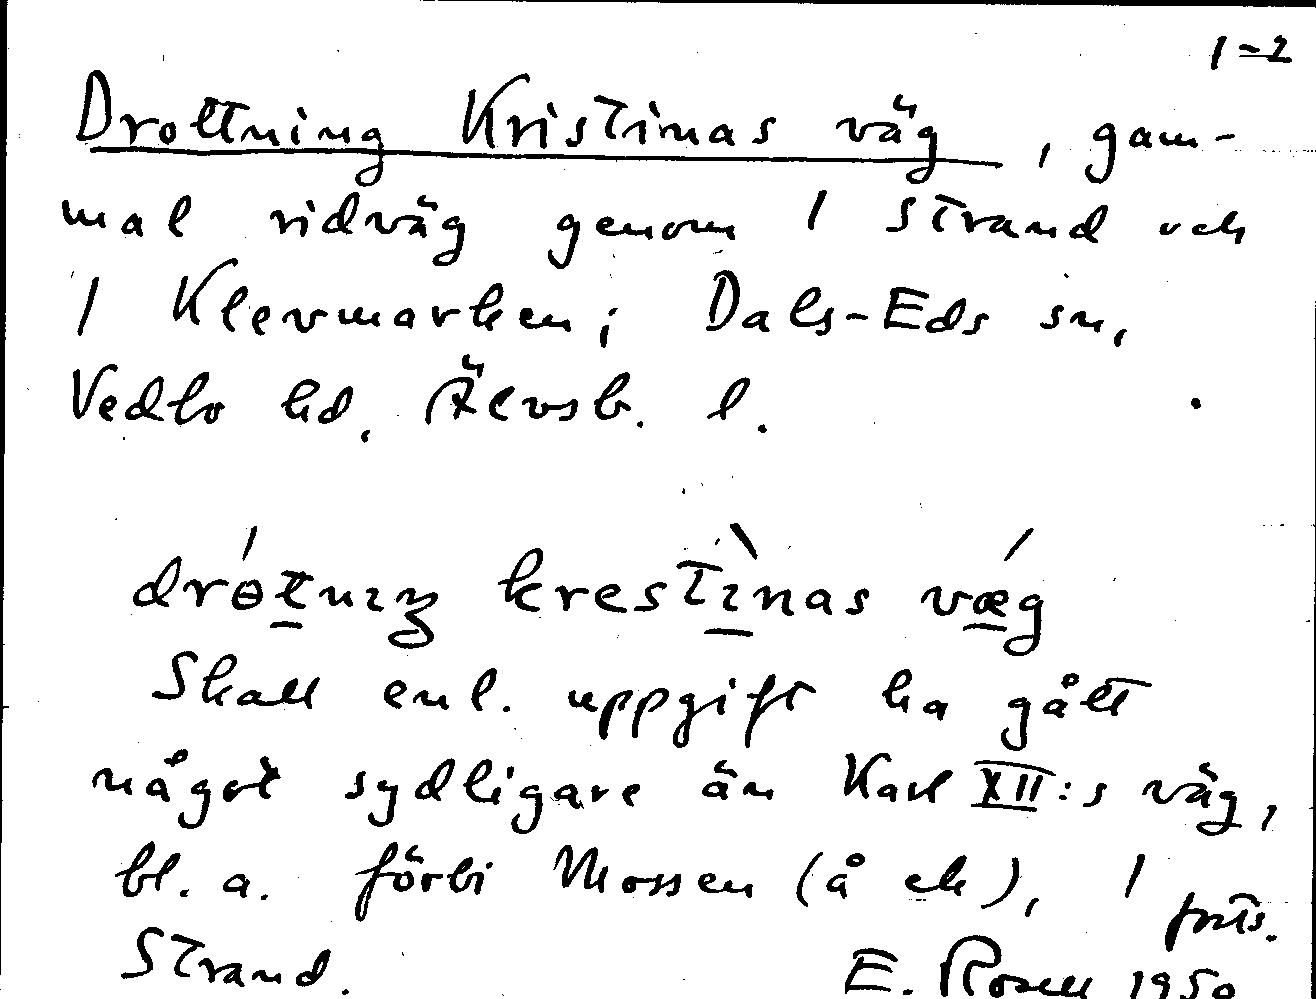 1-2
Drottning Kristinas väg, gam-
mal ridväg genom 1 Strand och
1 Klevmarken; Dals-Eds sn,
Vedbo hd, Älvsb. l.
drótnıŋ krestı̀nas vǽg
Skall enl. uppgift ha gått
något sydligare än Karl XII:s väg,
bl. a. förbi Mossen (å ek), 1
forts.
Strand.
E. Rosell 1950